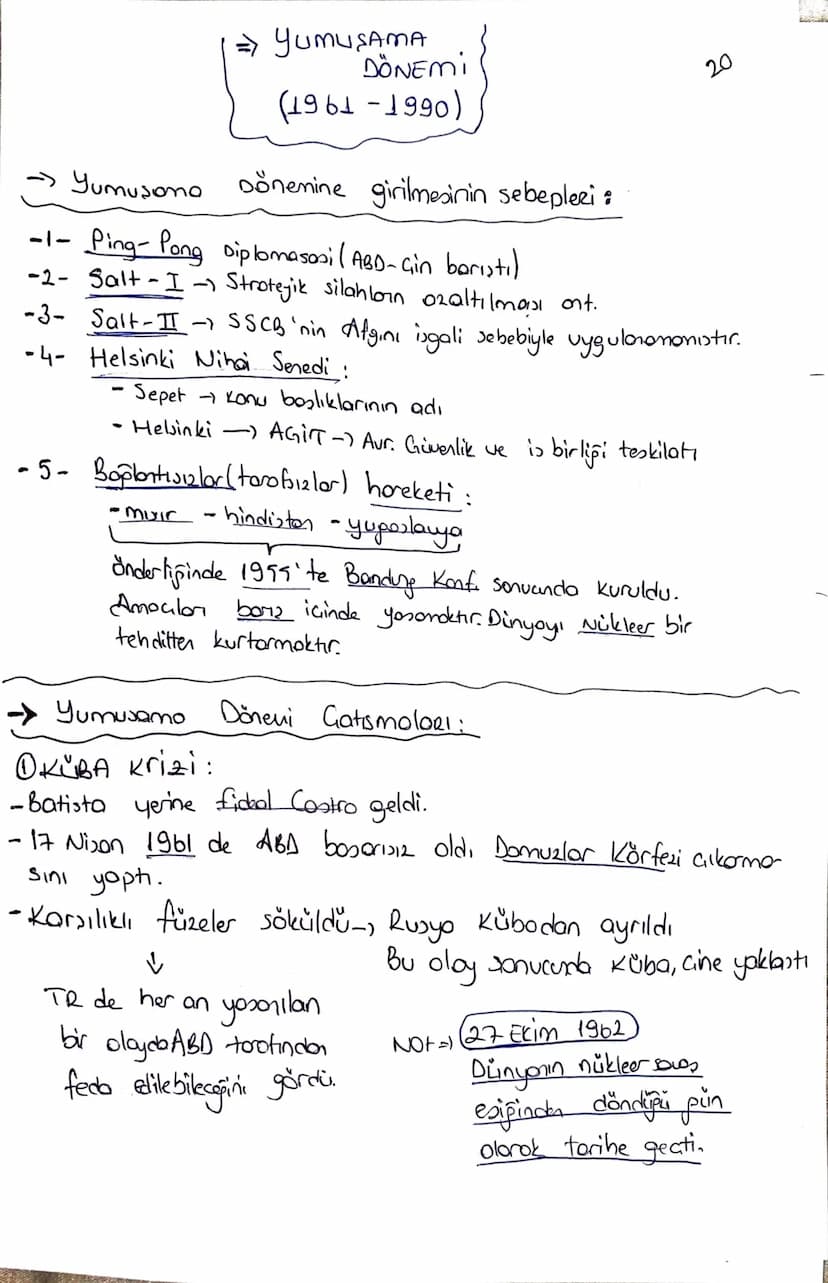 ⇒ YUMUŞAMA
DÖNEMİ
(1961 - 1990)
20
→ Yumuşama Dönemine girilmesinin sebepleri :
-1- Ping-Pong Diplomasisi (ABD-Çin barıştı)
-2- Salt-I → Stratejik silahların azaltılması ant.
-3- Salt-II → SSCB'nin Afganı işgali sebebiyle uygulanamamıştır.
-4- Helsinki Nihai Senedi :
- Sepet → Konu başlıklarının adı
- Helsinki → AGİT → Avr. Güvenlik ve iş birliği teşkilatı
-5- Bağlantısızlar (tarafsızlar) hareketi :
- mısır - hindistan - yugoslavya
Önderliğinde 1955'te Bandung Konf. sonucunda kuruldu.
Amaçları barış içinde yaşamaktır. Dünyayı Nükleer bir
tehditten kurtarmaktır.
→ Yumuşama Dönemi Çatışmaları :
① KÜBA Krizi :
- Batista yerine fidel Castro geldi.
- 17 Nisan 1961 de ABD başarısız oldı Domuzlar Körfezi çıkarma-
sını yaptı.
- Karşılıklı füzeler söküldü → Rusya Kübadan ayrıldı
↓
Bu olay sonucunda Küba, çine yaklaştı
TR de her an yaşanılan
bir olayda ABD tarafından
feda edilebileceğini gördü.
NOT ⇒ 27 Ekim 1962
Dünyanın nükleer savaş
eşiğinden döndüğü gün
olarak tarihe geçti.